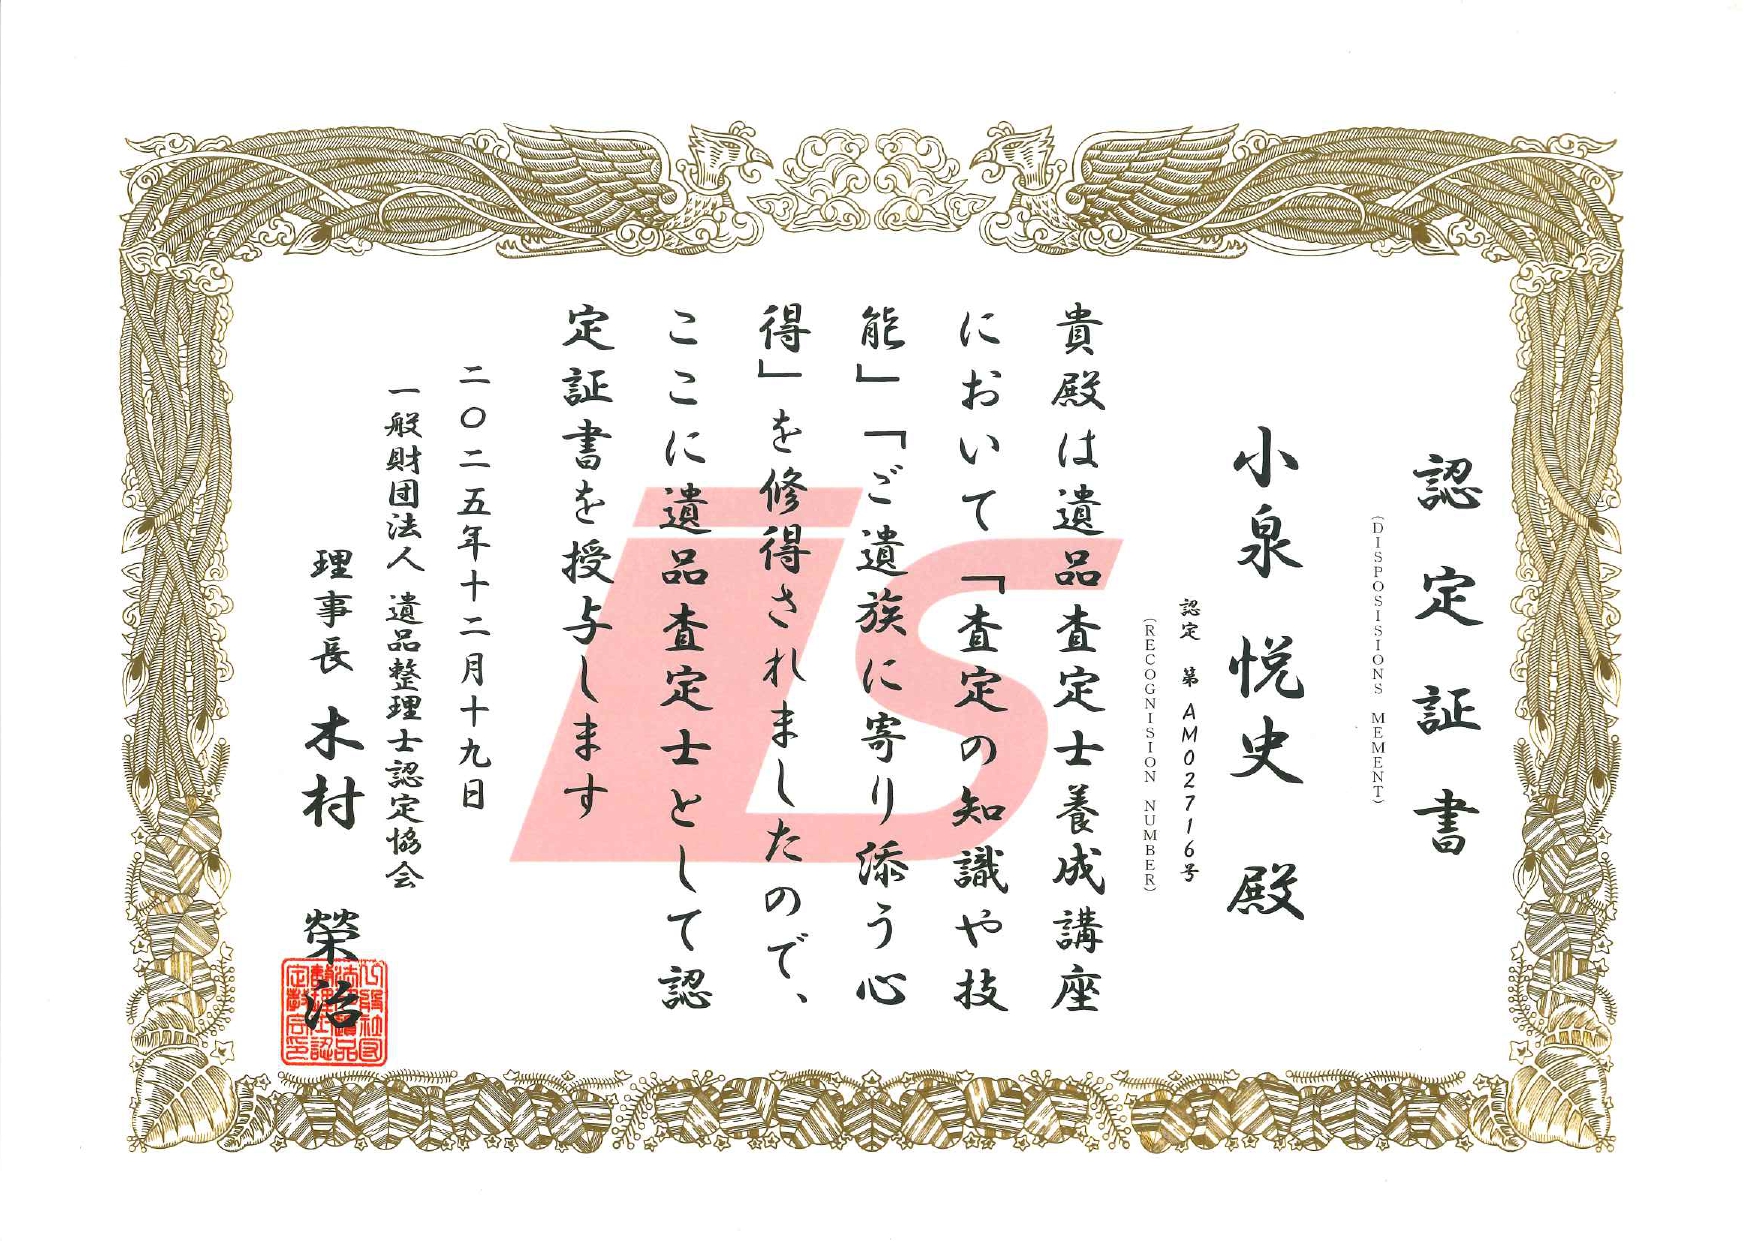 認定証書
(DISPOSISIONS MEMENT)
小泉 悦史 殿
認定 第AM02716号
(RECOGNISION NUMBER)
貴殿は遺品査定士養成講座
において「査定の知識や技
能」「ご遺族に寄り添う心
得」を修得されましたので、
ここに遺品査定士として認
定証書を授与します
二〇二五年十二月十九日
一般財団法人 遺品整理士認定協会
理事長 木村 榮治